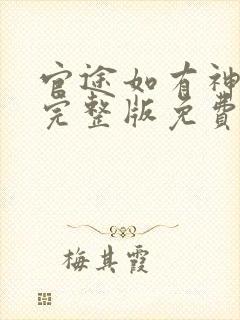 官途如有神
完整版免費
梅其霞